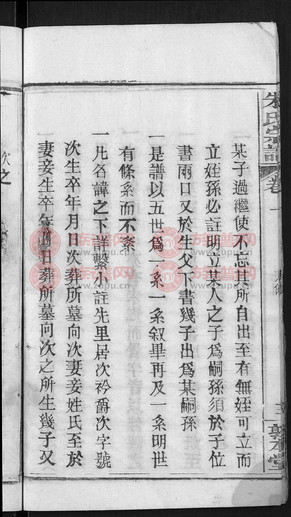 朱氏宗譜
卷一
某子過繼使不忘其所自出至有無姪可立而
立姪孫必註明立某人之子爲嗣孫須於子位
書兩口又於生父下書幾子出爲某嗣孫
一是譜以五世爲一系一系敘畢再及一系明世
有條系而不紊
一凡名諱之下詳繫小註先里居次衿爵次字號
次生卒年月日次葬所墓向次妻妾姓氏至於
妻妾生卒年月日葬所墓向次之所生幾子又
次之